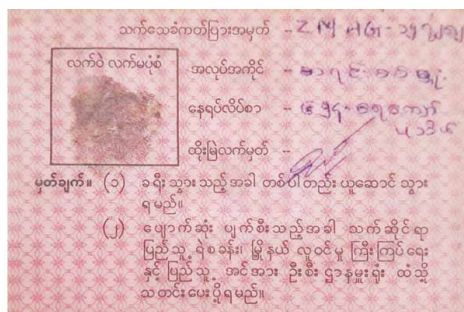 သက်သေခံကတ်ပြားအမှတ် - Z M
လက်ဝဲ လက်မပုံစံ
အလုပ်အကိုင် -
နေရပ်လိပ်စာ -
ထိုးမြဲလက်မှတ် -
မှတ်ချက်။ (၁) ခရီးသွားသည့်အခါ တစ်ပါတည်း ယူဆောင် သွား
ရမည်။
(၂) ပျောက်ဆုံး ပျက်စီးသည့်အခါ သက်ဆိုင်ရာ
ပြည်သူ့ ရဲစခန်း၊ မြို့နယ် လူဝင်မှု ကြီးကြပ်ရေး
နှင့် ပြည်သူ့ အင်အား ဦးစီး ဌာနမှူးရုံး ထံသို့
သတင်းပေးပို့ရမည်။